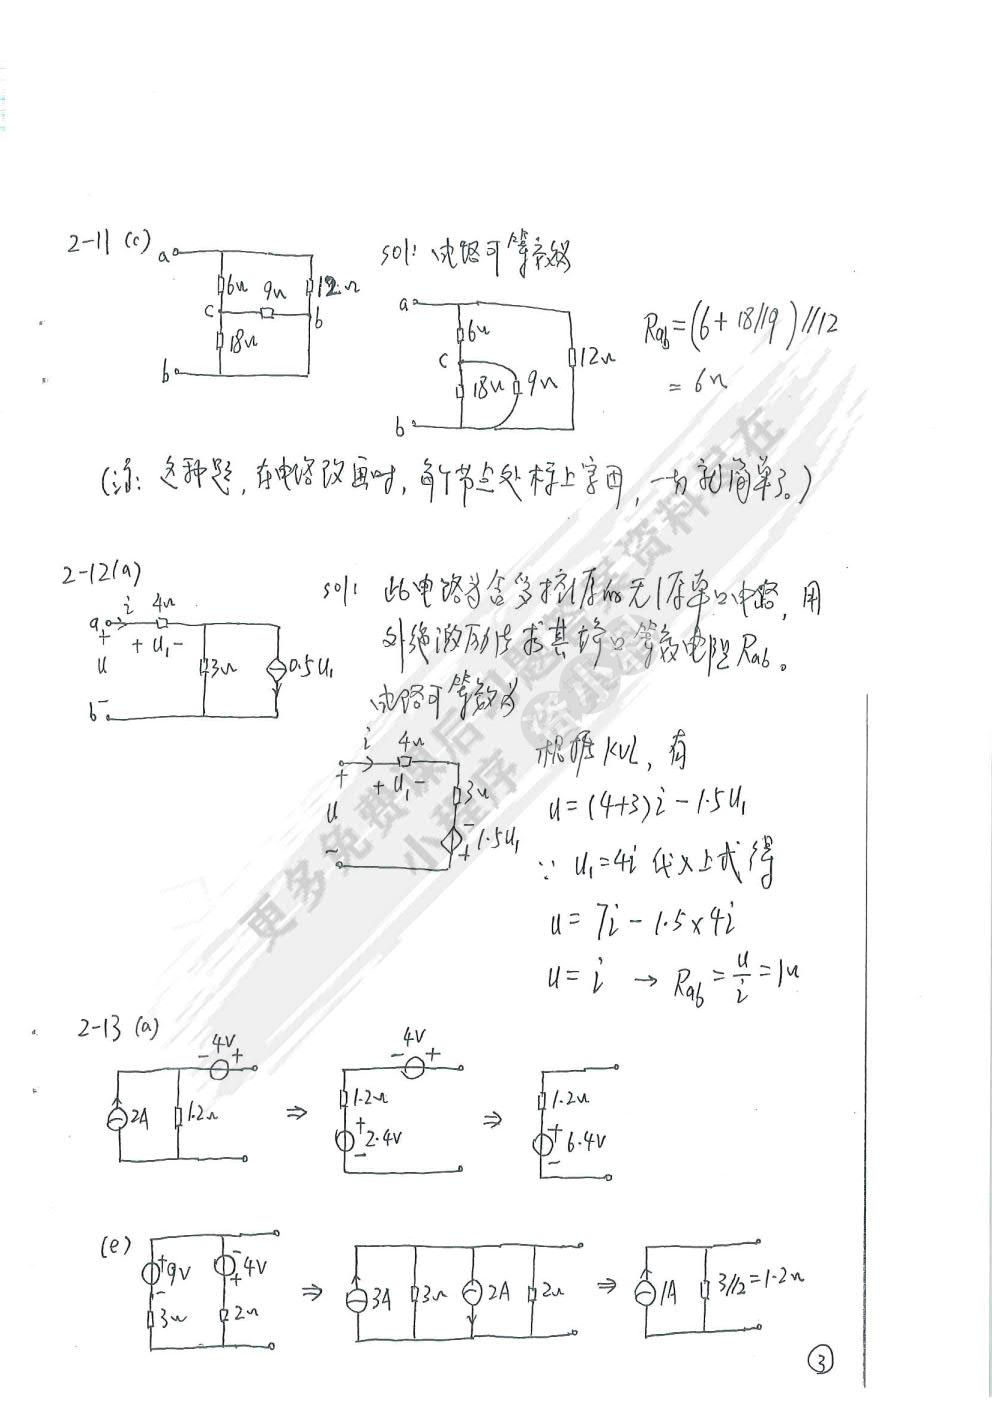 2-11 (c)
a
6Ω
9Ω
12Ω
c
b
18Ω
b
sol: 电路可等效为
a
6Ω
c
12Ω
18Ω
9Ω
b
Rab=(6+18//9)//12
=6Ω
(注: 这种题,在电路改画时,每个节点处标上字母,一切就简单了。)
2-12(a)
a
i
4Ω
+ u1 -
+
u
-
3Ω
0.5u1
b
sol: 此电路为含受控源的无源单口电路,用
外施激励法求其端口等效电阻Rab。
电路可等效为
i
4Ω
+ u1 -
+
u
-
3Ω
-
+
1.5u1
根据KVL,有
u=(4+3)i-1.5u1
∵ u1=4i 代入上式得
u=7i-1.5×4i
u=i → Rab=u/i=1Ω
2-13 (a)
- 4V +
2A
1.2Ω
⇒
- 4V +
1.2Ω
+
2.4V
-
⇒
1.2Ω
+
6.4V
-
(e)
+
9V
-
3Ω
-
4V
+
2Ω
⇒
3A
3Ω
2A
2Ω
⇒
1A
3//2=1.2Ω
③
更多免费课后习题答案资料尽在
小程序